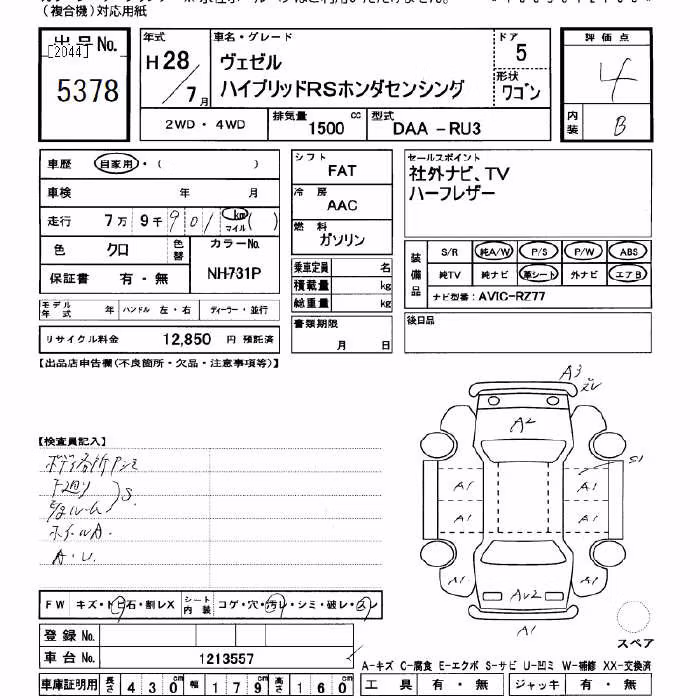 (複合機)対応用紙
出品No.
[2044]
5378
年式
H28
/7月
車名・グレード
ヴェゼル
ハイブリッドRSホンダセンシング
ドア
5
形状
ワゴン
2WD・4WD
排気量
1500 cc
型式
DAA -RU3
評価点
4
内装
B
車歴 自家用・( )
車検 年 月
走行 7万 9千 901 km マイル ( )
色 クロ
色替
カラーNo.
NH-731P
保証書 有・無
モデル年式 年 ハンドル 左・右 ディーラー・並行
リサイクル料金 12,850 円 預託済
シフト
FAT
冷房
AAC
燃料
ガソリン
乗車定員 名
積載量 kg
総重量 kg
書類期限
月 日
セールスポイント
社外ナビ、TV
ハーフレザー
装備品
S/R 純A/W P/S P/W ABS
純TV 純ナビ 革シート 外ナビ エアB
ナビ型番: AVIC-RZ77
後日品
【出品店申告欄(不良箇所・欠品・注意事項等)】
【検査員記入】
下廻り
S.
ホイルA.
A・U.
A3
A2
S1
A1 A1
A1 A1
A1 A1
AU2
A1
スペア
FW キズ・トビ石・割レX
シート内装 コゲ・穴・汚レ・シミ・破レ・スレ
登録No.
車台No. 1213557
車庫証明用 長さ 430cm 幅 179cm 高さ 160cm
A-キズ C-腐食 E-エクボ S-サビ U-凹ミ W-補修 XX-交換済
工具 有・無 ジャッキ 有・無